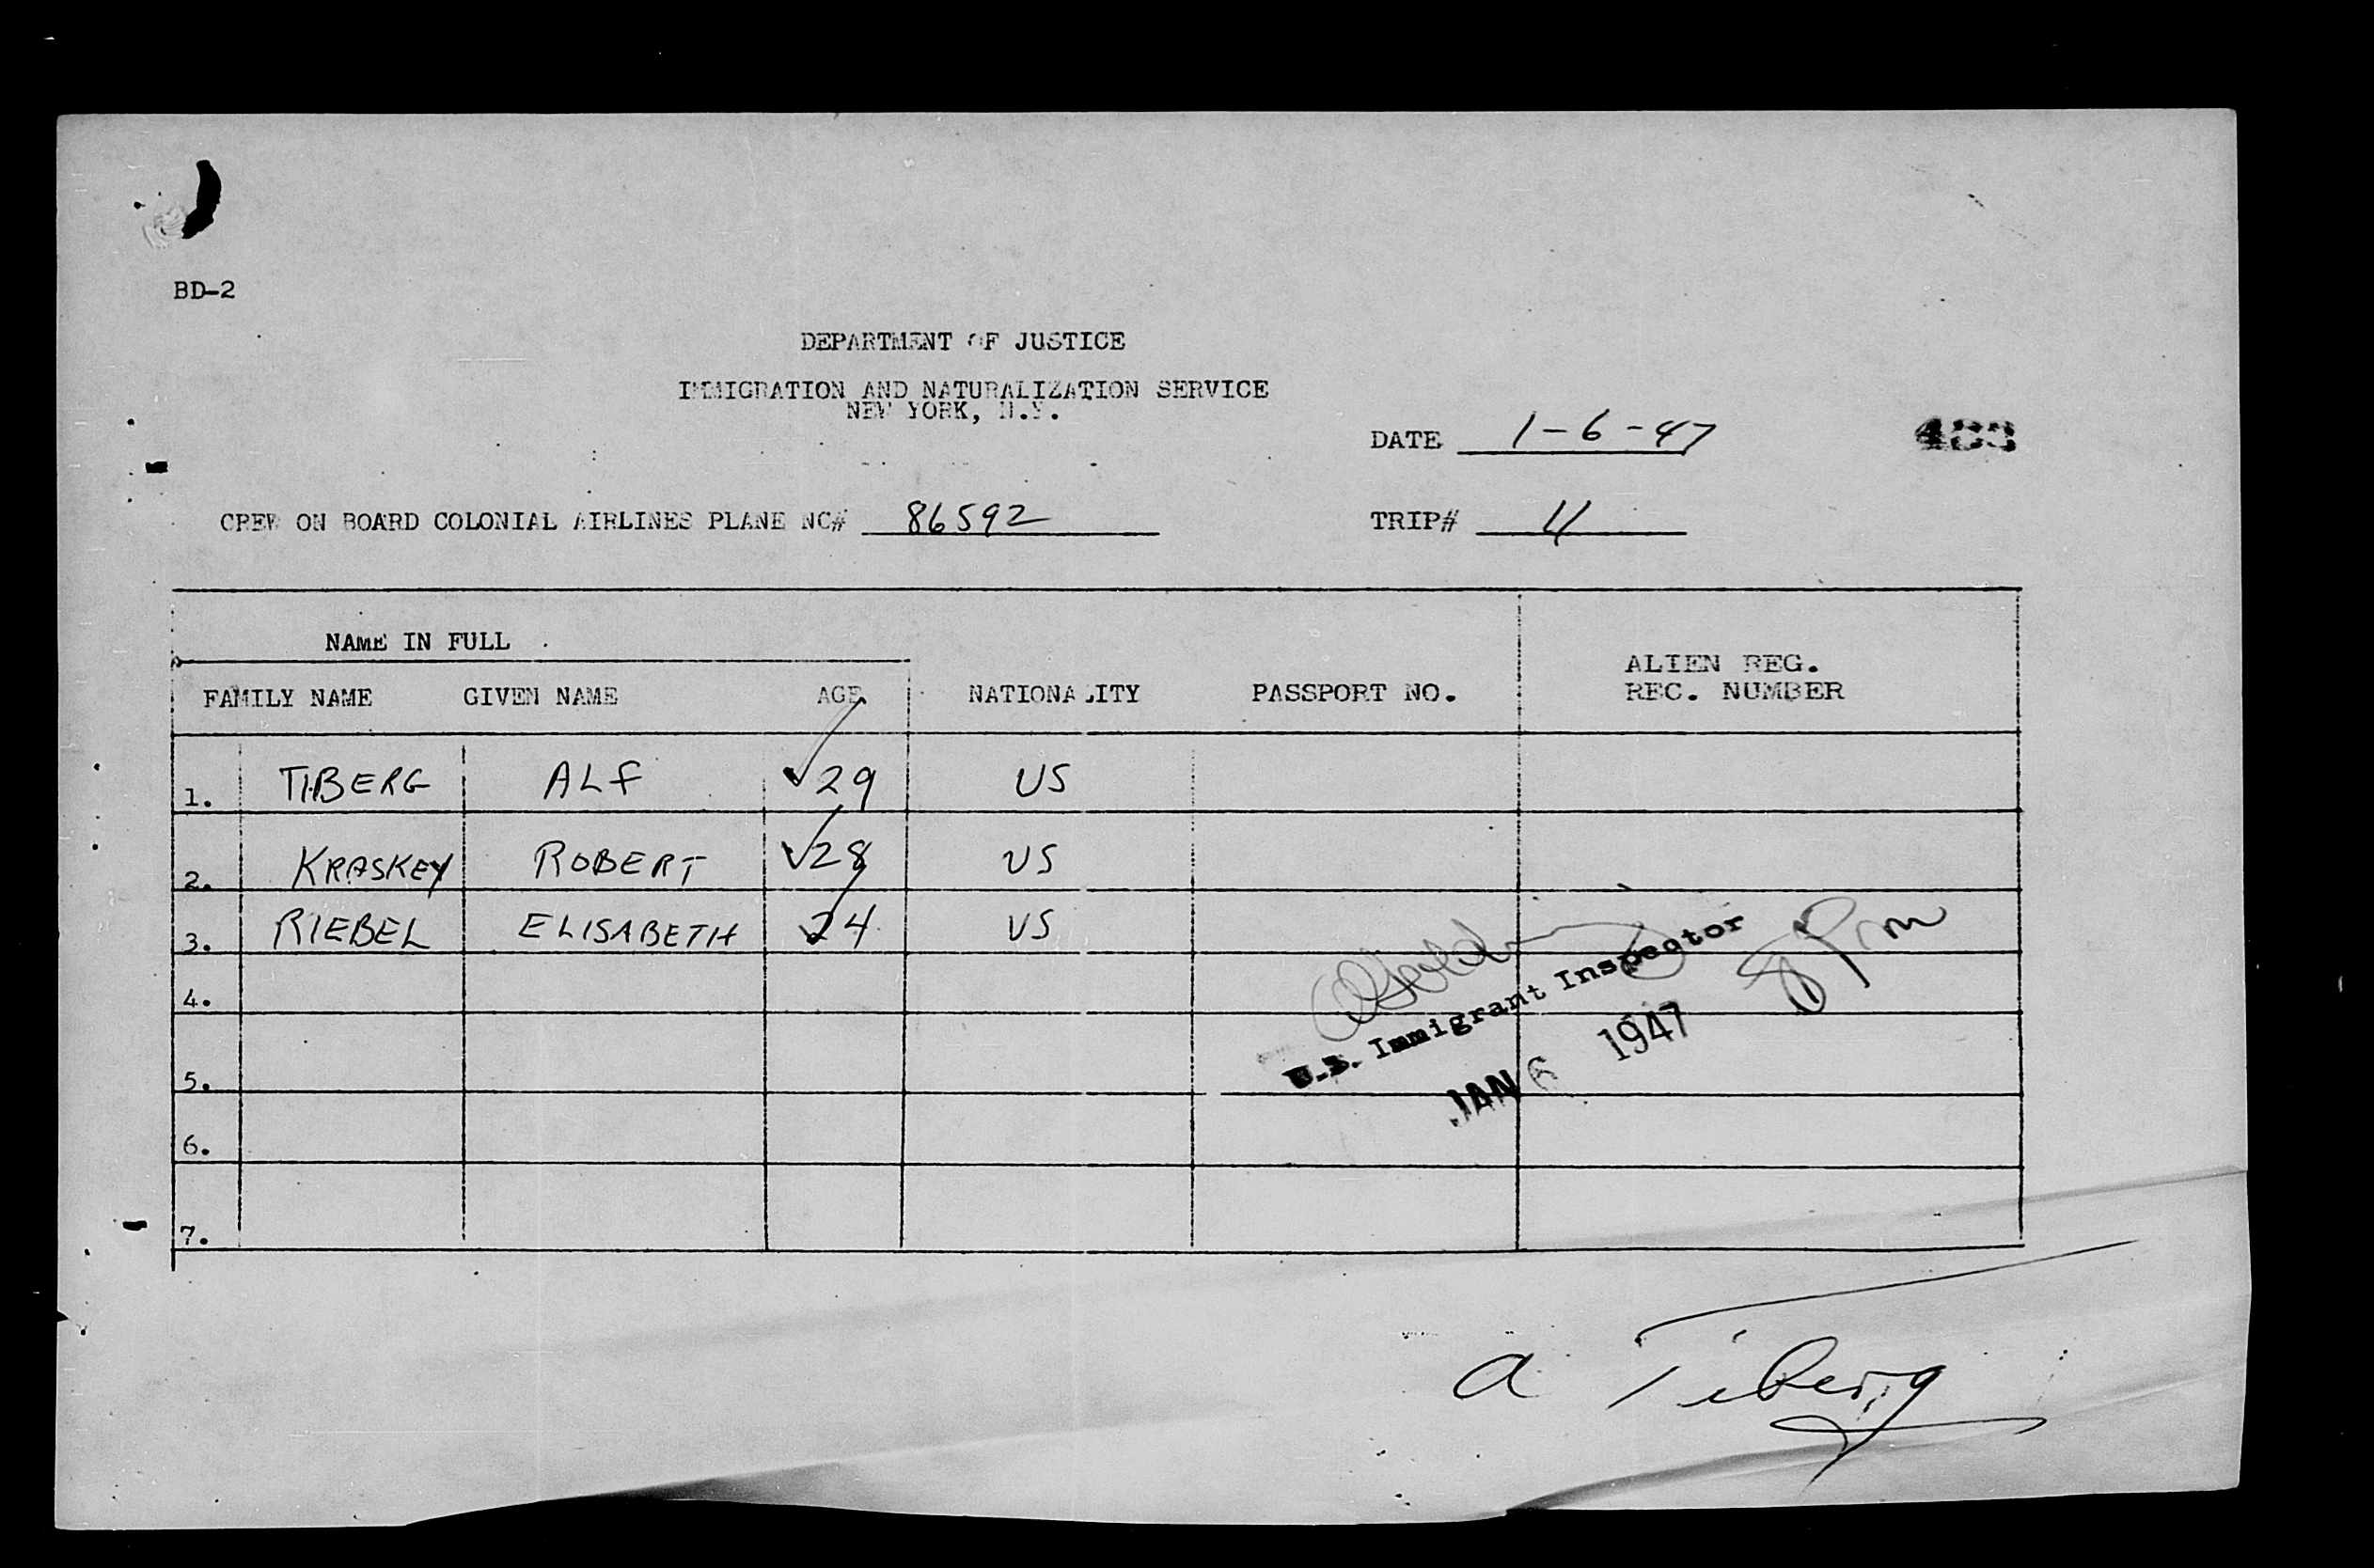 BD-2
DEPARTMENT OF JUSTICE
IMMIGRATION AND NATURALIZATION SERVICE
NEW YORK, N.Y.
DATE 1-6-47
CREW ON BOARD COLONIAL AIRLINES PLANE NC# 86592 TRIP# 11
NAME IN FULL
FAMILY NAME GIVEN NAME AGE NATIONALITY PASSPORT NO. ALIEN REG. REC. NUMBER
1. TIBERG ALF 29 US
2. KRASKEY ROBERT 28 US
3. RIEBEL ELISABETH 24 US
4.
5.
6.
7.
8 Pm
U.S. Immigrant Inspector
JAN 6 1947
A Tiberg